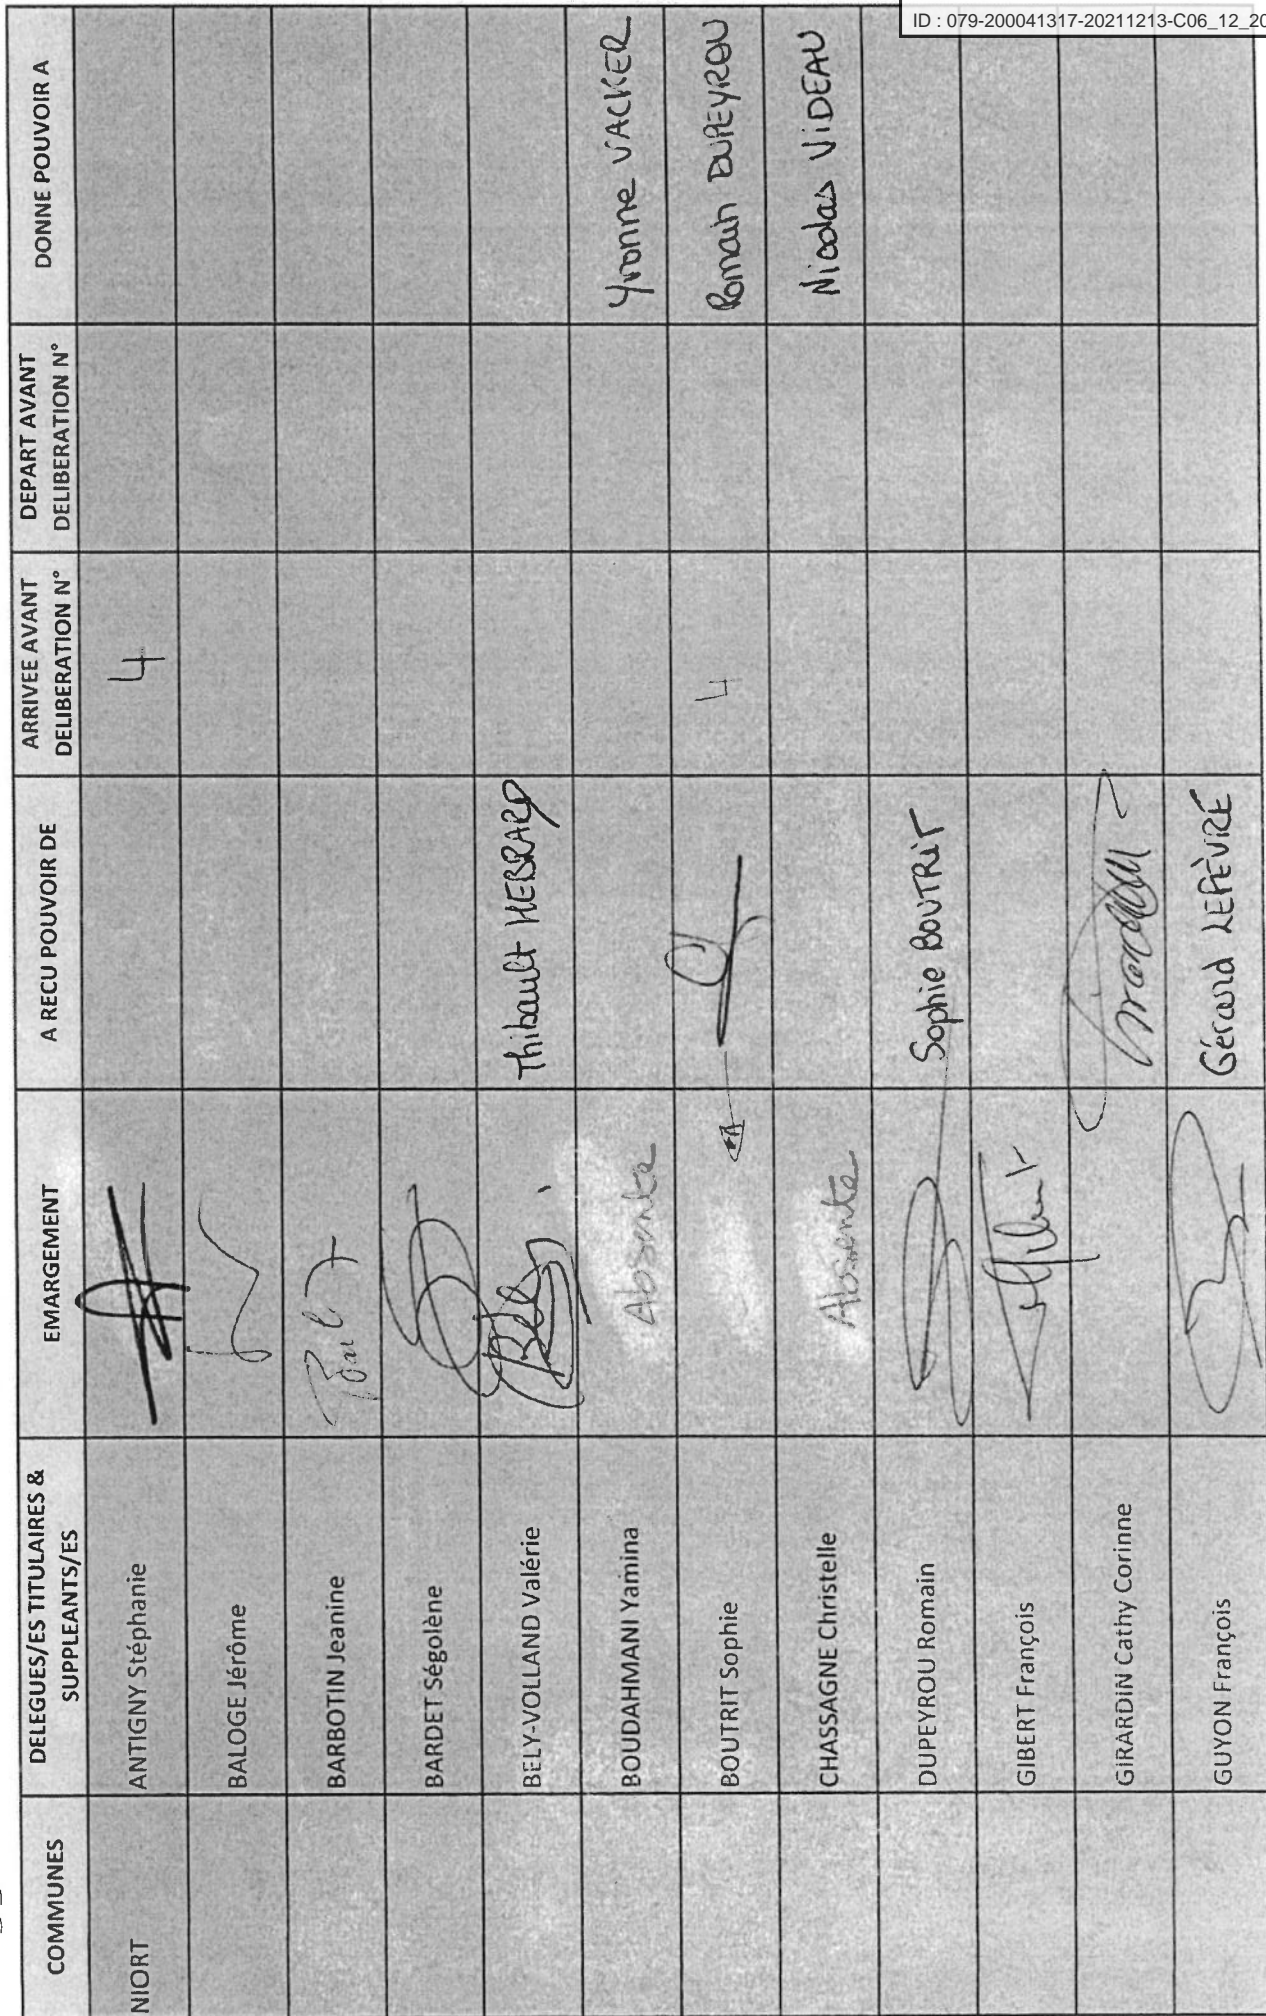 ID : 079-200041317-20211213-C06_12_20
COMMUNES
DELEGUES/ES TITULAIRES &
SUPPLEANTS/ES
EMARGEMENT
A RECU POUVOIR DE
ARRIVEE AVANT
DELIBERATION N°
DEPART AVANT
DELIBERATION N°
DONNE POUVOIR A
NIORT
ANTIGNY Stéphanie
4
BALOGE Jérôme
BARBOTIN Jeanine
BARDET Ségolène
BELY-VOLLAND Valérie
Thibault HEBRARD
BOUDAHMANI Yamina
Absente
Yvonne VACKER
BOUTRIT Sophie
4
Romain DUPEYROU
CHASSAGNE Christelle
Absente
Nicolas ViDEAU
DUPEYROU Romain
Sophie BOUTRiT
GIBERT François
GIRARDIN Cathy Corinne
GUYON François
Gérard LEFÈVRE